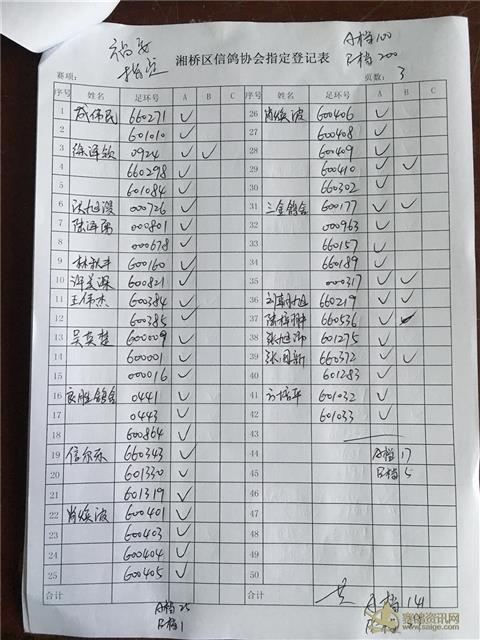 福安
指定
A档100
B档200
湘桥区信鸽协会指定登记表
赛项: 页数: 3
序号 姓名 足环号 A B C 序号 姓名 足环号 A B C
1 660271 ✓ 26 肖焕波 600406 ✓
2 601010 ✓ 27 600408 ✓
3 徐泽钦 0924 ✓ ✓ 28 600409 ✓
4 660298 ✓ 29 600410 ✓ ✓
5 601084 ✓ 30 660302 ✓
6 000726 ✓ 31 三金鸽舍 600177 ✓ ✓
7 000801 ✓ 32 000963 ✓
8 000678 ✓ 33 660157 ✓
9 林秋丰 600160 ✓ 34 660189 ✓
10 600821 ✓ 35 000317 ✓ ✓
11 王伟杰 600384 ✓ 36 660219 ✓ ✓
12 600385 ✓ 37 660536 ✓ ✓
13 吴英楚 600009 ✓ 38 601275 ✓
14 600001 ✓ 39 张国新 660372 ✓ ✓
15 000016 ✓ 40 601283 ✓
16 良胜鸽舍 0441 ✓ 41 601032 ✓
17 0443 ✓ 42 601033 ✓
18 600864 ✓ 43
19 660343 ✓ 44 A档 17
20 601330 ✓ 45 B档 5
21 601319 ✓ 46
22 肖焕波 600401 ✓ 47
23 600403 ✓ 48
24 600404 ✓ 49
25 600405 ✓ 50
合计 合计 共 A档 141
A档 25
B档 1
赛鸽资讯网
www.saige.com